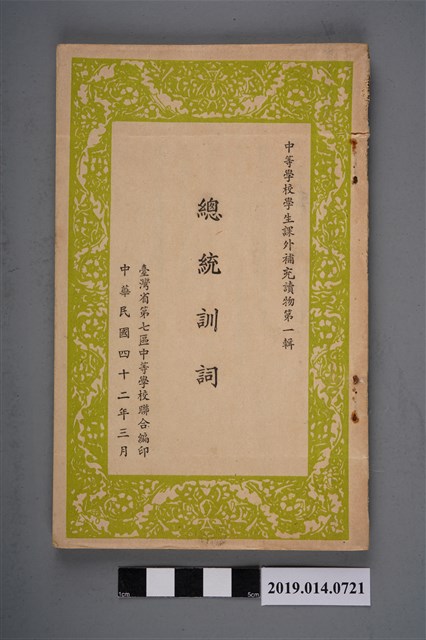 中等學校學生課外補充讀物第一輯
總統訓詞
臺灣省第七區中等學校聯合編印
中華民國四十二年三月
1cm
5cm
2019.014.0721